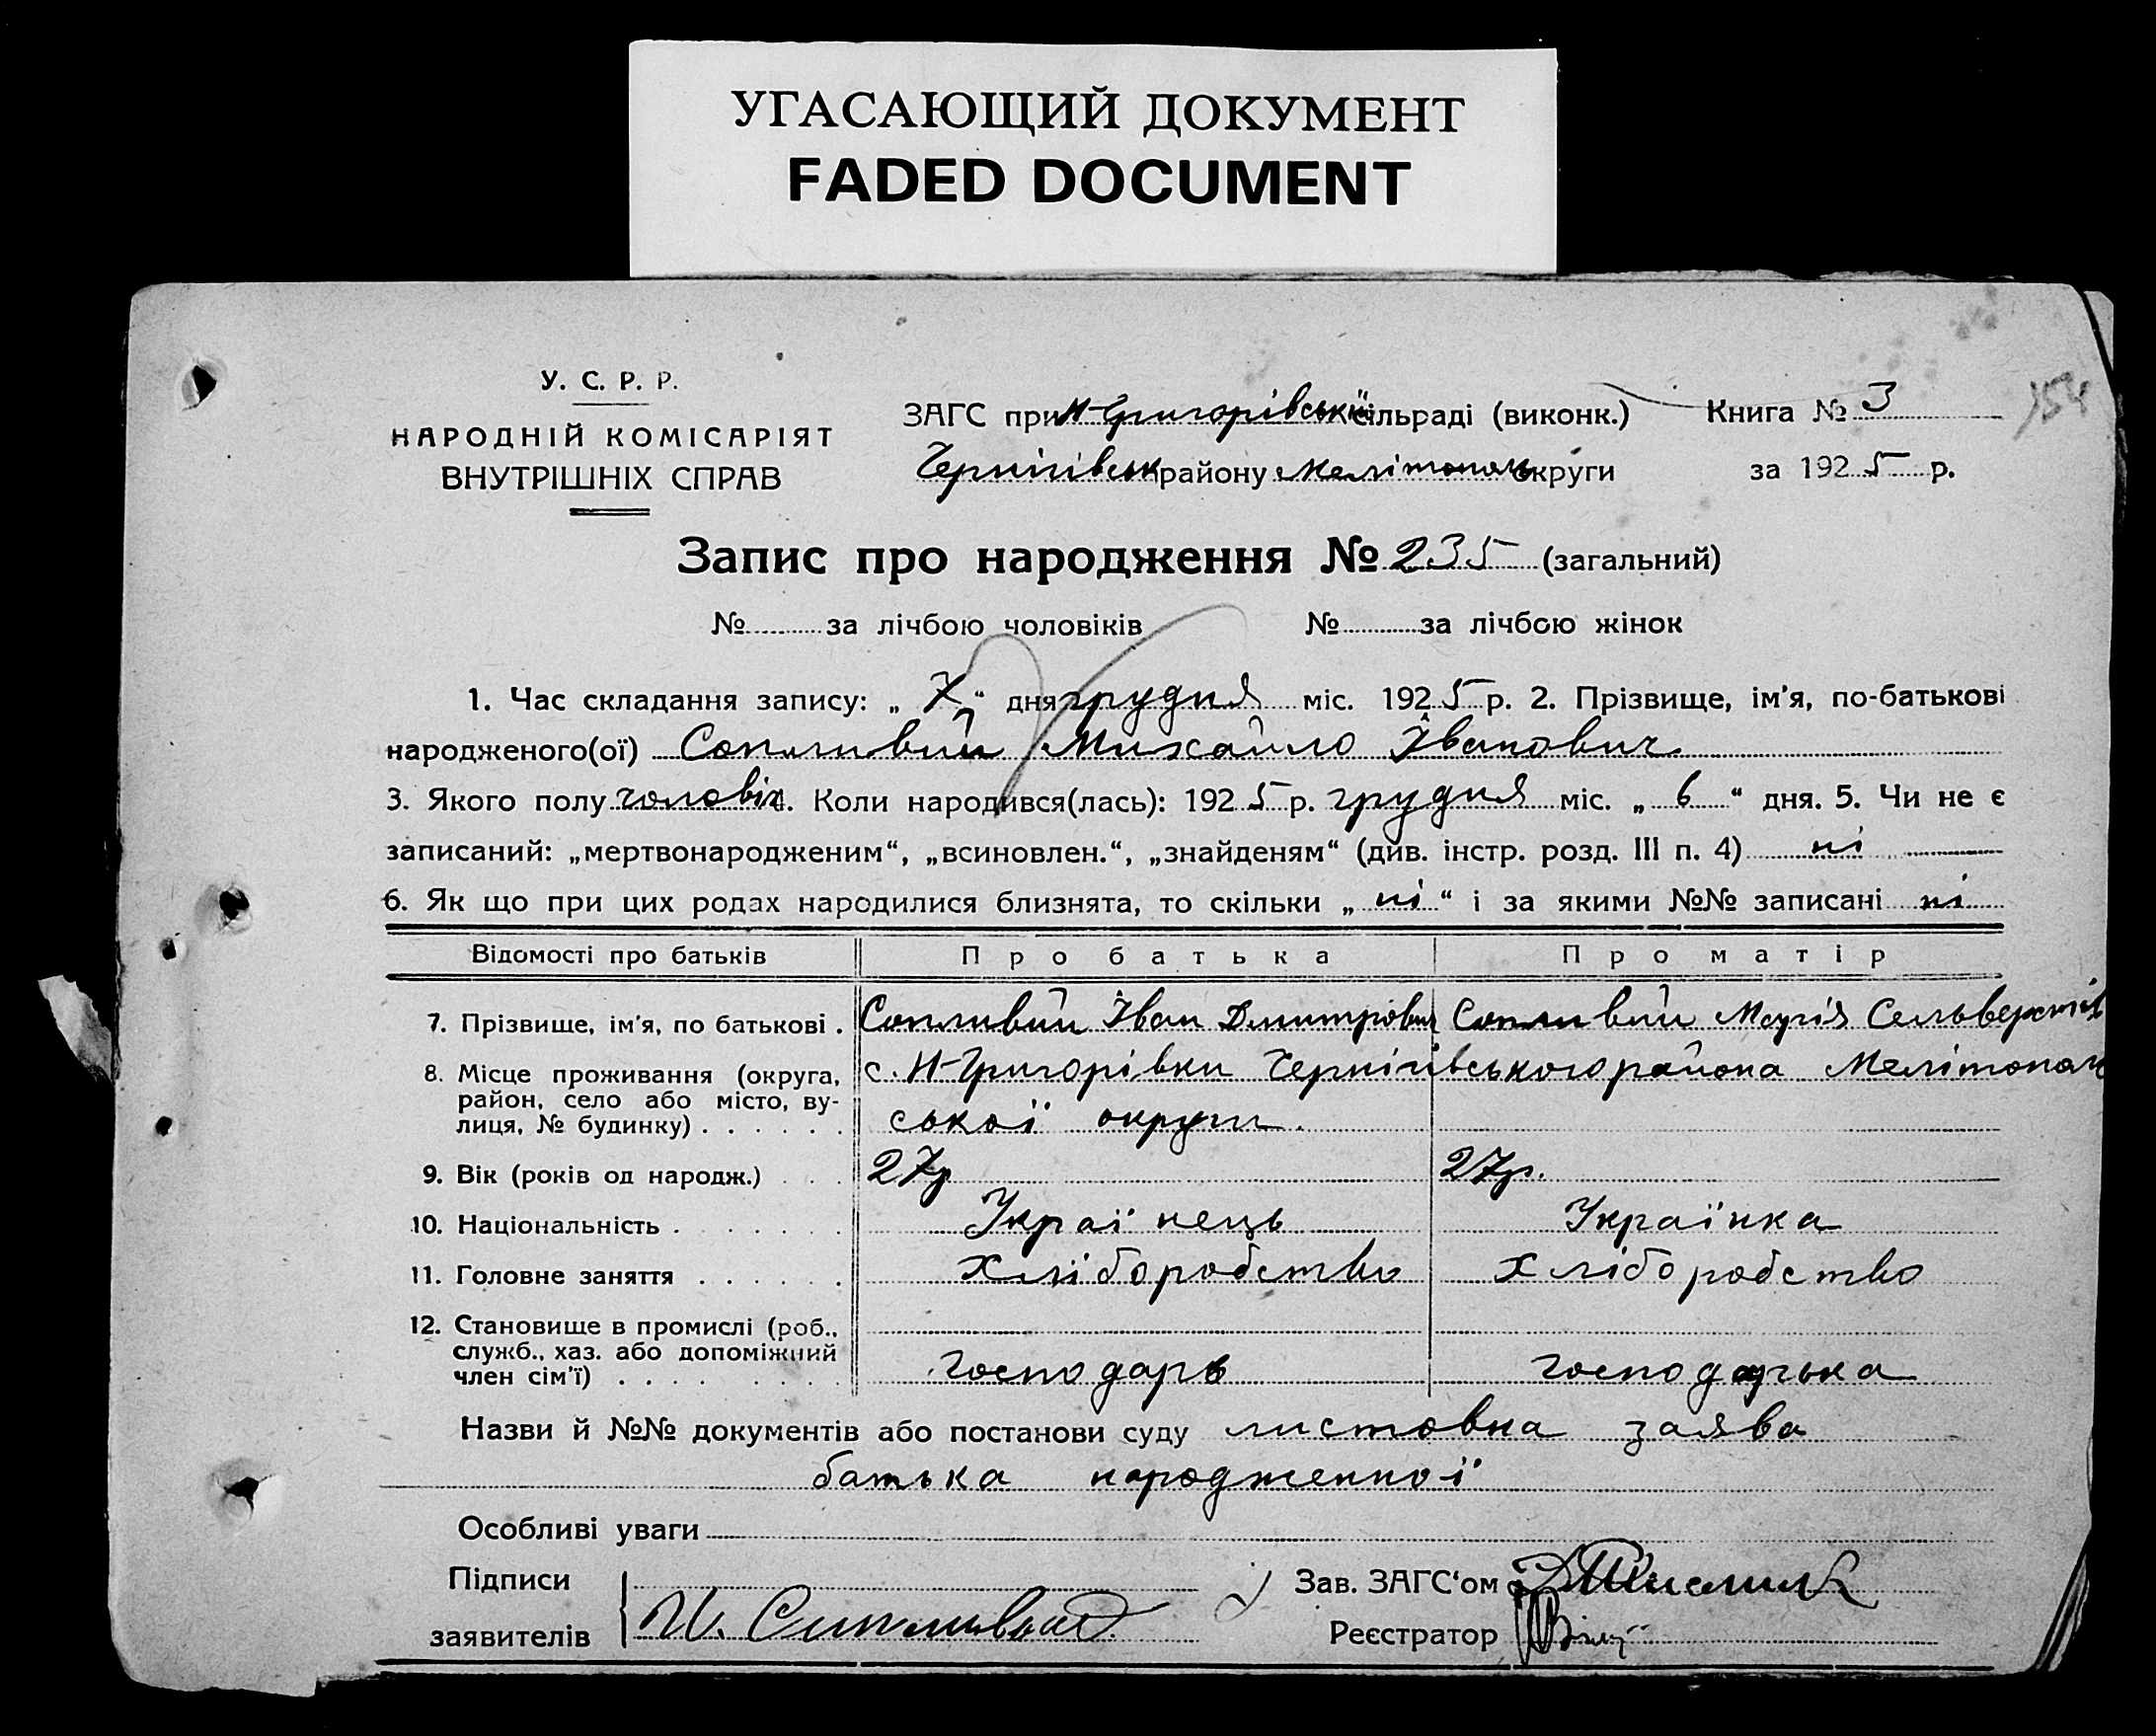 УГАСАЮЩИЙ ДОКУМЕНТ
FADED DOCUMENT
154
У. С. Р. Р.
НАРОДНІЙ КОМІСАРІЯТ
ВНУТРІШНІХ СПРАВ
ЗАГС при Н-Григорівській сільраді (виконк.) Книга № 3
Чернігівськ району Мелітополь округи за 1925 р.
Запис про народження № 235 (загальний)
№ за лічбою чоловіків № за лічбою жінок
1. Час складання запису: „ 7 “ дня грудня міс. 1925 р. 2. Прізвище, ім'я, по-батькові
народженого(ої) Сопливий Михайло Іванович
3. Якого полу чоловіч 4. Коли народився(лась): 1925 р. грудня міс. „ 6 “ дня. 5. Чи не є
записаний: „мертвонародженим“, „всиновлен.“, „знайденям“ (див. інстр. розд. III п. 4) ні
6. Як що при цих родах народилися близнята, то скільки „ ні “ і за якими №№ записані ні
Відомості про батьків Про батька Про матір
7. Прізвище, ім'я, по батькові . Сопливий Іван Дмитрович Сопливий Марія Сельверстів
8. Місце проживання (округа, с. Н-Григорівки Чернігівського района Мелітополь
район, село або місто, ву-
лиця, № будинку) . . . . . . ської округи.
9. Вік (років од народж.) . . . 27р 27р.
10. Національність . . . . . . Українець Українка
11. Головне заняття . . . . . . Хліборобство Хліборобство
12. Становище в промислі (роб.,
служб., хаз. або допоміжний
член сім'ї) . . . . . . . . господарь господарька
Назви й №№ документів або постанови суду листовна заява
батька народженної
Особливі уваги
Підписи Зав. ЗАГС‘ом
заявителів И. Реєстратор